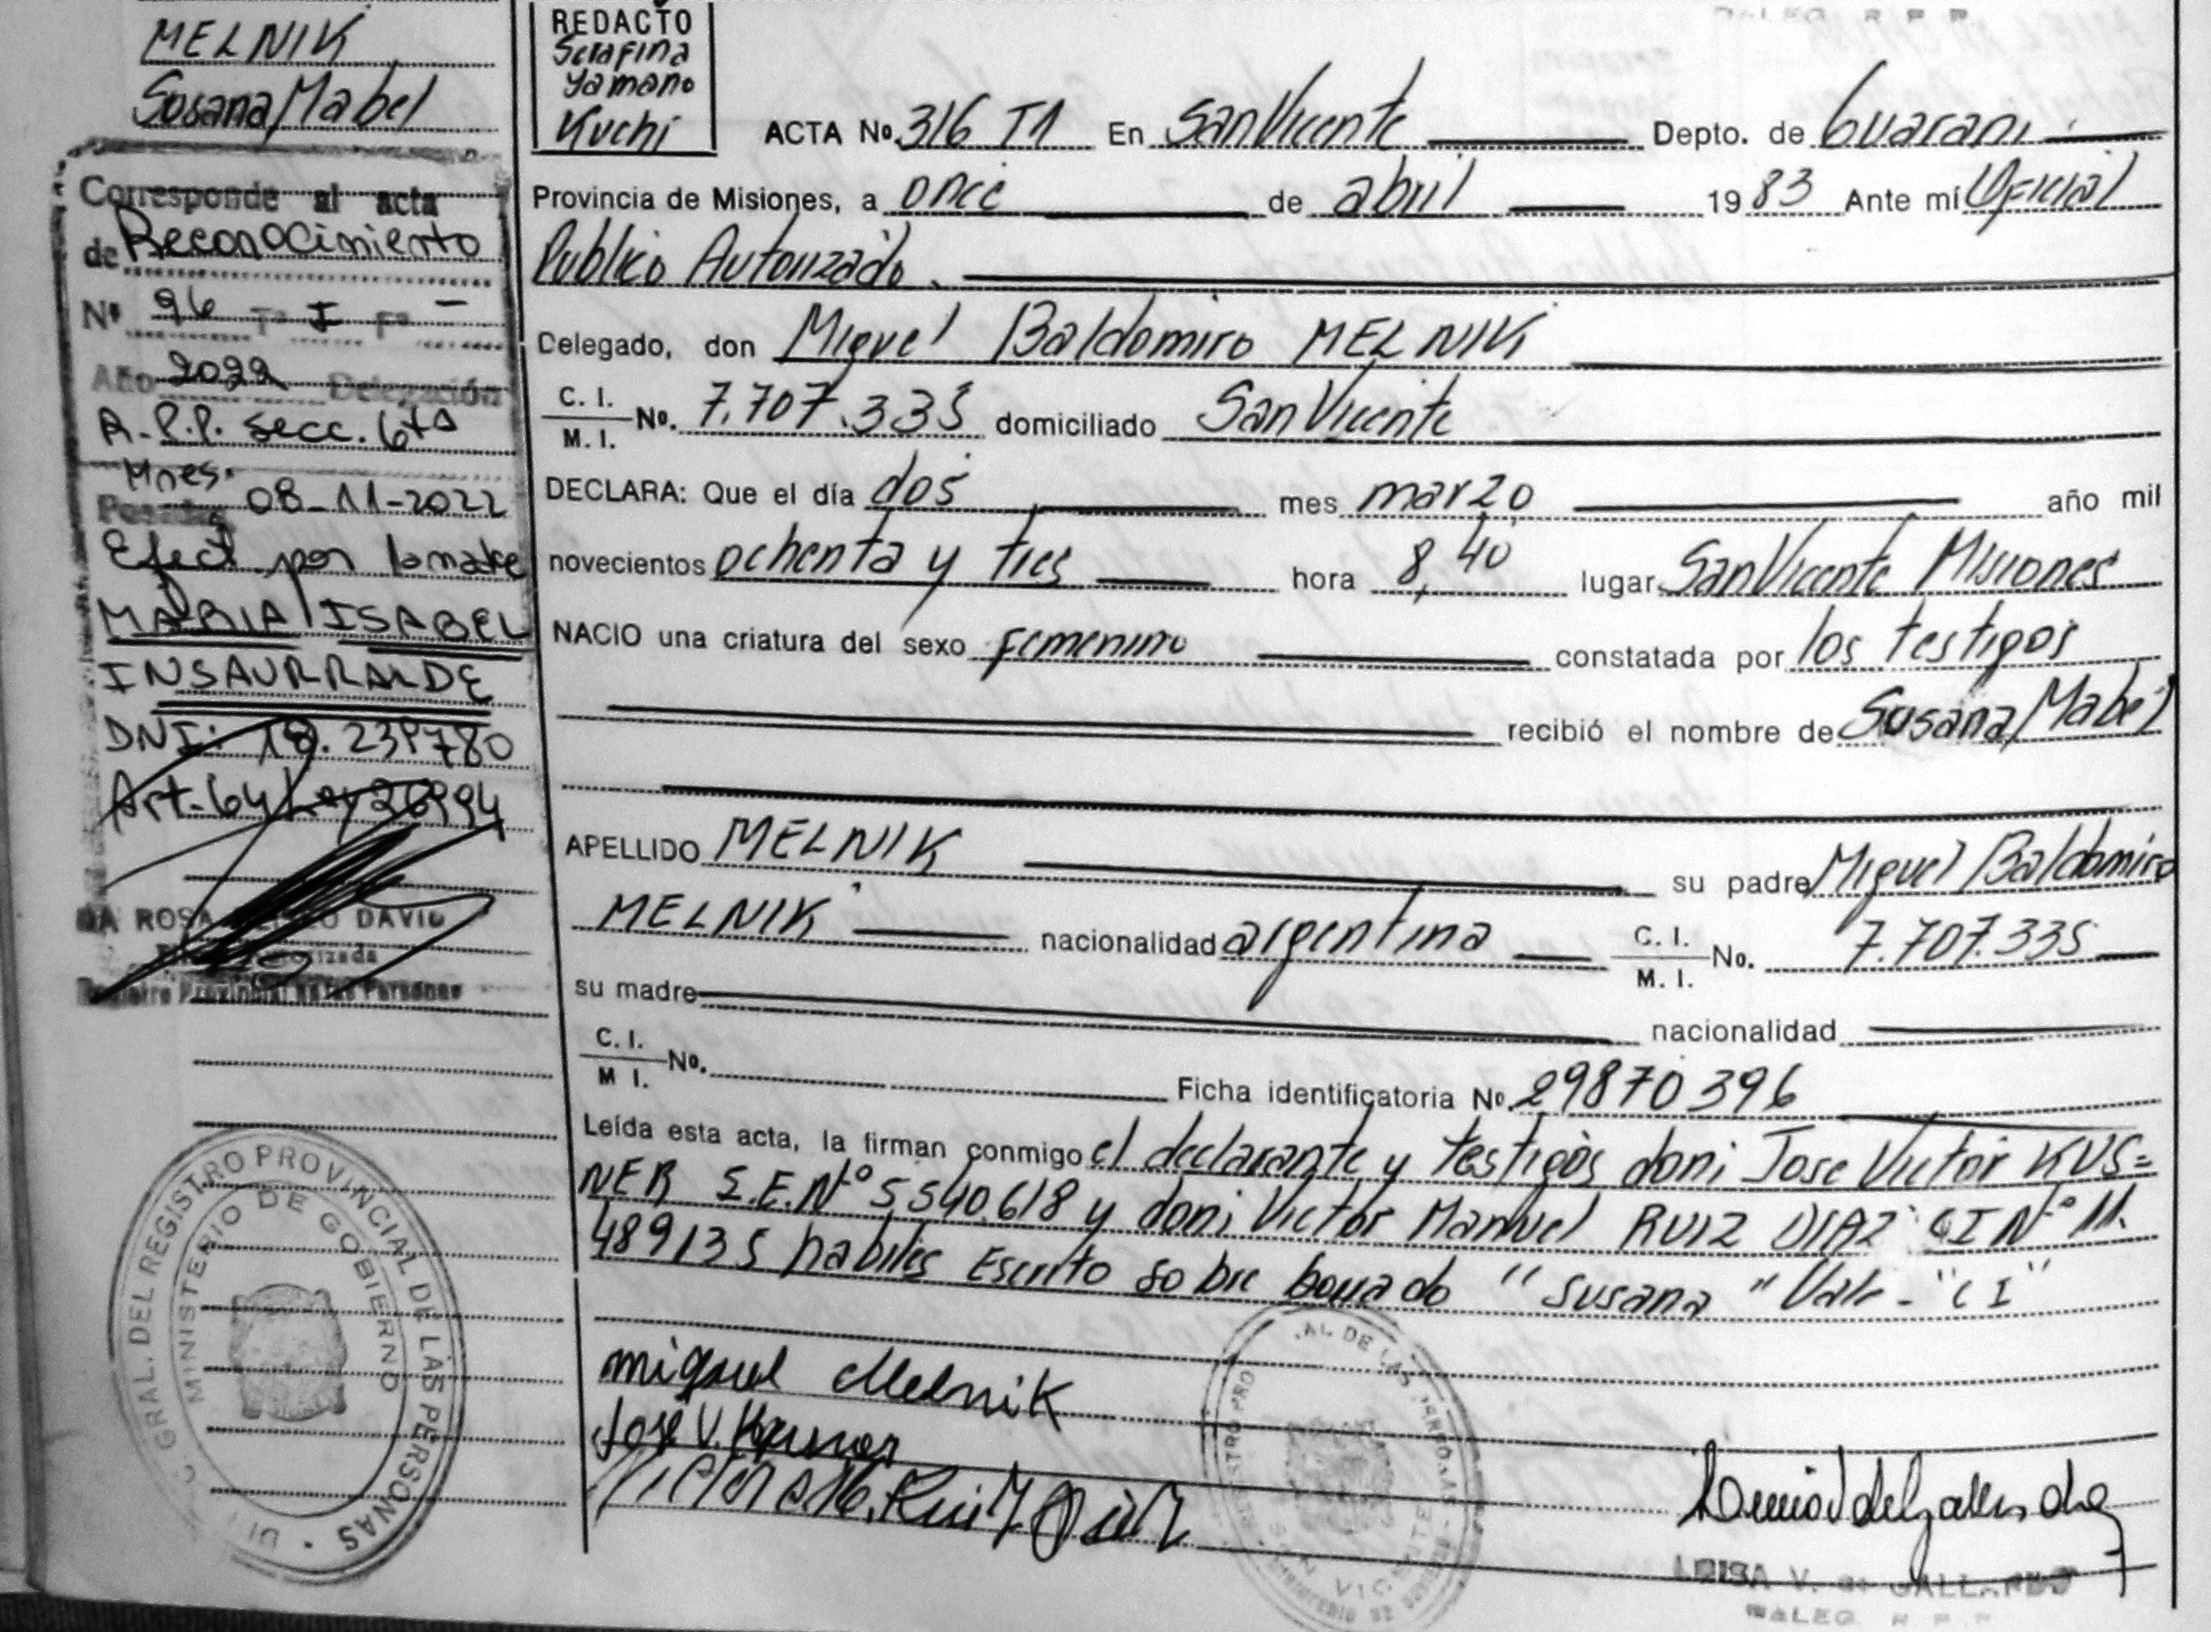 MELNIK
Susana Mabel
Corresponde al acta
de Reconocimiento
Nº 96 Tº I Fº -
Año 2022 Delegación
R.P.P. Secc. 6ta
Mnes.
Posadas, 08-11-2022
Efect. por la madre
MARIA ISABEL
INSAURRALDE
DNI: 18.239780
Art-64 Ley 26994
DA ROSA DAVID
Registro Provincial de las Personas
GRAL. DEL REGISTRO PROVINCIAL DE LAS PERSONAS
MINISTERIO DE GOBIERNO
REDACTO
Serafina
Yamano
Kuchi
ACTA Nº 316 T1 En San Vicente Depto. de Guarani
Provincia de Misiones, a once de abril 1983 Ante mí Oficial
Publico Autorizado.
Celegado, don Miguel Baldomiro MELNIK
C. I. / M. I. No. 7.707.335 domiciliado San Vicente
DECLARA: Que el día dos mes marzo año mil
novecientos ochenta y tres hora 8,40 lugar San Vicente Misiones
NACIO una criatura del sexo femenino constatada por los testigos
recibió el nombre de Susana Mabel
APELLIDO MELNIK su padre Miguel Baldomiro
MELNIK nacionalidad argentina C. I. / M. I. No. 7.707.335
su madre nacionalidad
C. I. / M I. Nº.
Ficha identificatoria Nº 29870396
Leída esta acta, la firman conmigo el declarante y testigos don: Jose Victor KUS=
NER I.E.Nº 5540.618 y don: Victor Manuel RUIZ DIAZ CI Nº 11.
489135 habiles Escrito sobre borrado "Susana" Vale - "CI"
miguel Melnik
Jose V. Kusner
Ruiz Diaz
AL DE LAS PERSONAS
SAN VICENTE
LUISA V. de GALLARDO
R. P. P.